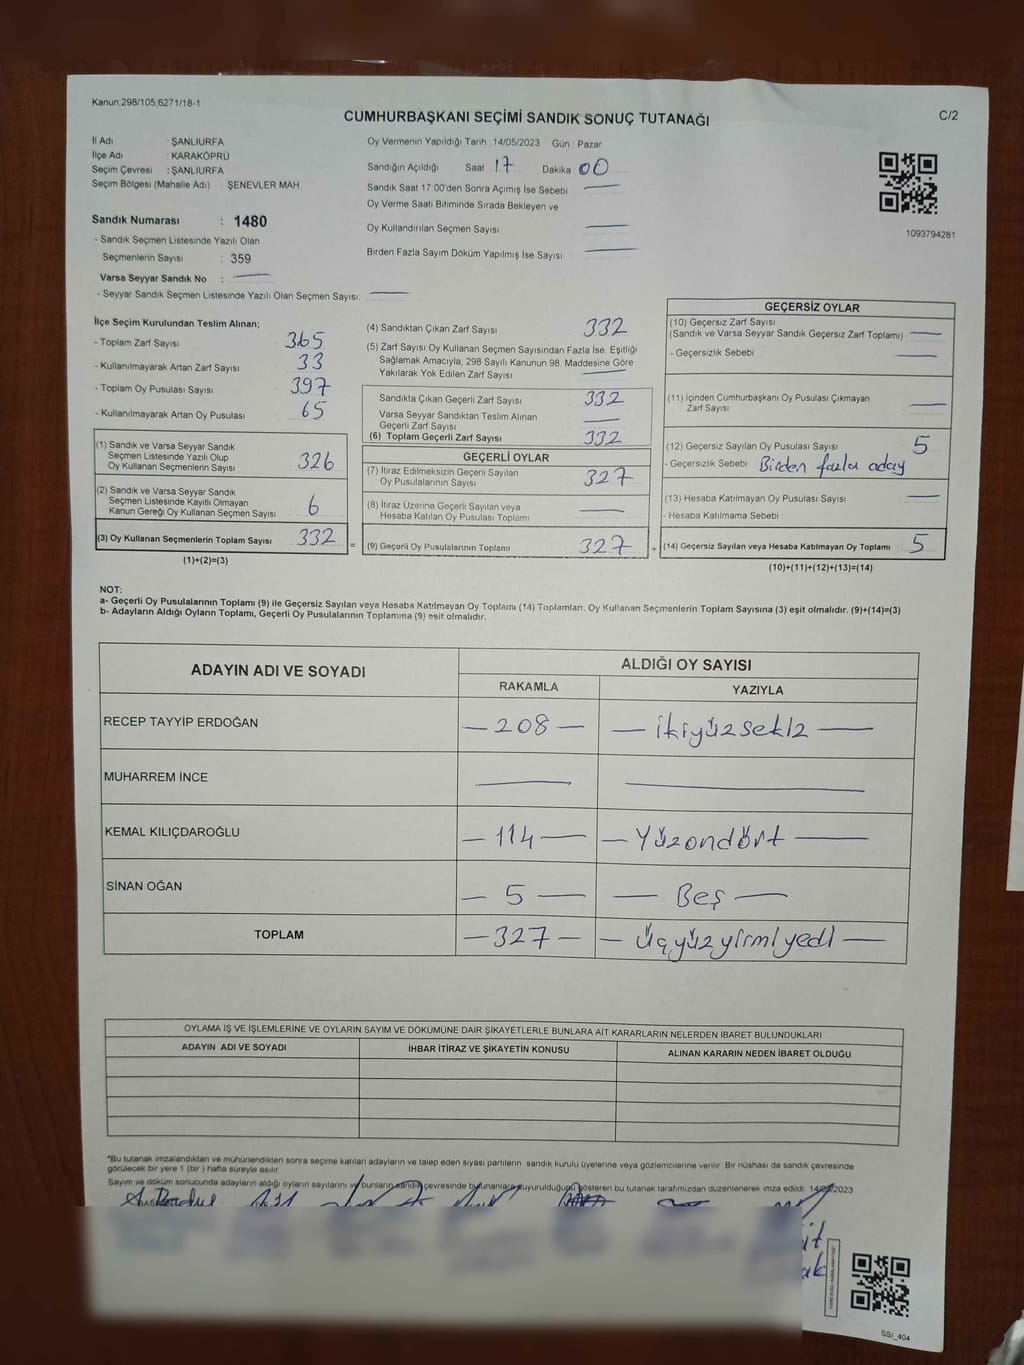 Kanun,298/105,6271/18-1
C/2
CUMHURBAŞKANI SEÇİMİ SANDIK SONUÇ TUTANAĞI
İl Adı ŞANLIURFA
İlçe Adı KARAKÖPRÜ
Seçim Çevresi : ŞANLIURFA
Seçim Bölgesi (Mahalle Adı) ŞENEVLER MAH.
Sandık Numarası : 1480
- Sandık Seçmen Listesinde Yazılı Olan
Seçmenlerin Sayısı : 359
Varsa Seyyar Sandık No :
- Seyyar Sandık Seçmen Listesinde Yazılı Olan Seçmen Sayısı:
Oy Vermenin Yapıldığı Tarih 14/05/2023 Gün Pazar
Sandığın Açıldığı Saat 17 Dakika 00
Sandık Saat 17:00'den Sonra Açımış İse Sebebi
Oy Verme Saati Bitiminde Sırada Bekleyen ve
Oy Kullandırılan Seçmen Sayısı
Birden Fazla Sayım Döküm Yapılmış İse Sayısı
1093794281
İlçe Seçim Kurulundan Teslim Alınan;
- Toplam Zarf Sayısı 365
- Kullanılmayarak Artan Zarf Sayısı 33
- Toplam Oy Pusulası Sayısı 397
- Kullanılmayarak Artan Oy Pusulası 65
(1) Sandık ve Varsa Seyyar Sandık
Seçmen Listesinde Yazılı Olup
Oy Kullanan Seçmenlerin Sayısı 326
(2) Sandık ve Varsa Seyyar Sandık
Seçmen Listesinde Kayıtlı Olmayan
Kanun Gereği Oy Kullanan Seçmen Sayısı 6
(3) Oy Kullanan Seçmenlerin Toplam Sayısı 332 =
(1)+(2)=(3)
(4) Sandıktan Çıkan Zarf Sayısı 332
(5) Zarf Sayısı Oy Kullanan Seçmen Sayısından Fazla İse, Eşitliği
Sağlamak Amacıyla; 298 Sayılı Kanunun 98. Maddesine Göre
Yakılarak Yok Edilen Zarf Sayısı
Sandıkta Çıkan Geçerli Zarf Sayısı 332
Varsa Seyyar Sandıktan Teslim Alınan
Geçerli Zarf Sayısı
(6) Toplam Geçerli Zarf Sayısı 332
GEÇERLİ OYLAR
(7) İtiraz Edilmeksizin Geçerli Sayılan
Oy Pusulalarının Sayısı 327
(8) İtiraz Üzerine Geçerli Sayılan veya
Hesaba Katılan Oy Pusulası Toplamı
(9) Geçerli Oy Pusulalarının Toplamı 327 +
GEÇERSİZ OYLAR
(10) Geçersiz Zarf Sayısı
(Sandık ve Varsa Seyyar Sandık Geçersiz Zarf Toplamı)
- Geçersizlik Sebebi
(11) İçinden Cumhurbaşkanı Oy Pusulası Çıkmayan
Zarf Sayısı
(12) Geçersiz Sayılan Oy Pusulası Sayısı 5
- Geçersizlik Sebebi Birden fazla aday
(13) Hesaba Katılmayan Oy Pusulası Sayısı
- Hesaba Katılmama Sebebi
(14) Geçersiz Sayılan veya Hesaba Katılmayan Oy Toplamı 5
(10)+(11)+(12)+(13)=(14)
NOT:
a- Geçerli Oy Pusulalarının Toplamı (9) ile Geçersiz Sayılan veya Hesaba Katılmayan Oy Toplamı (14) Toplamları, Oy Kullanan Seçmenlerin Toplam Sayısına (3) eşit olmalıdır. (9)+(14)=(3)
b- Adayların Aldığı Oyların Toplamı, Geçerli Oy Pusulalarının Toplamına (9) eşit olmalıdır.
ADAYIN ADI VE SOYADI ALDIĞI OY SAYISI
RAKAMLA YAZIYLA
RECEP TAYYİP ERDOĞAN — 208 — — ikiyüzsekiz —
MUHARREM İNCE
KEMAL KILIÇDAROĞLU — 114 — — Yüzondört —
SİNAN OĞAN — 5 — — Beş —
TOPLAM — 327 — — Üçyüzyirmiyedi —
OYLAMA İŞ VE İŞLEMLERİNE VE OYLARIN SAYIM VE DÖKÜMÜNE DAİR ŞİKAYETLERLE BUNLARA AİT KARARLARIN NELERDEN İBARET BULUNDUKLARI
ADAYIN ADI VE SOYADI İHBAR İTİRAZ VE ŞİKAYETİN KONUSU ALINAN KARARIN NEDEN İBARET OLDUĞU
*Bu tutanak imzalandıktan ve mühürlendikten sonra seçime katılan adayların ve talep eden siyasi partilerin sandık kurulu üyelerine veya gözlemcilerine verilir. Bir nüshası da sandık çevresinde
görülecek bir yere 1 (bir) hafta süreyle asılır.
Sayım ve döküm sonucunda adayların aldığı oyların sayılarını ve bunların sandık çevresinde bulunanlara duyurulduğunu gösteren bu tutanak tarafımızdan düzenlenerek imza edildi. 14/05/2023
SSİ_404